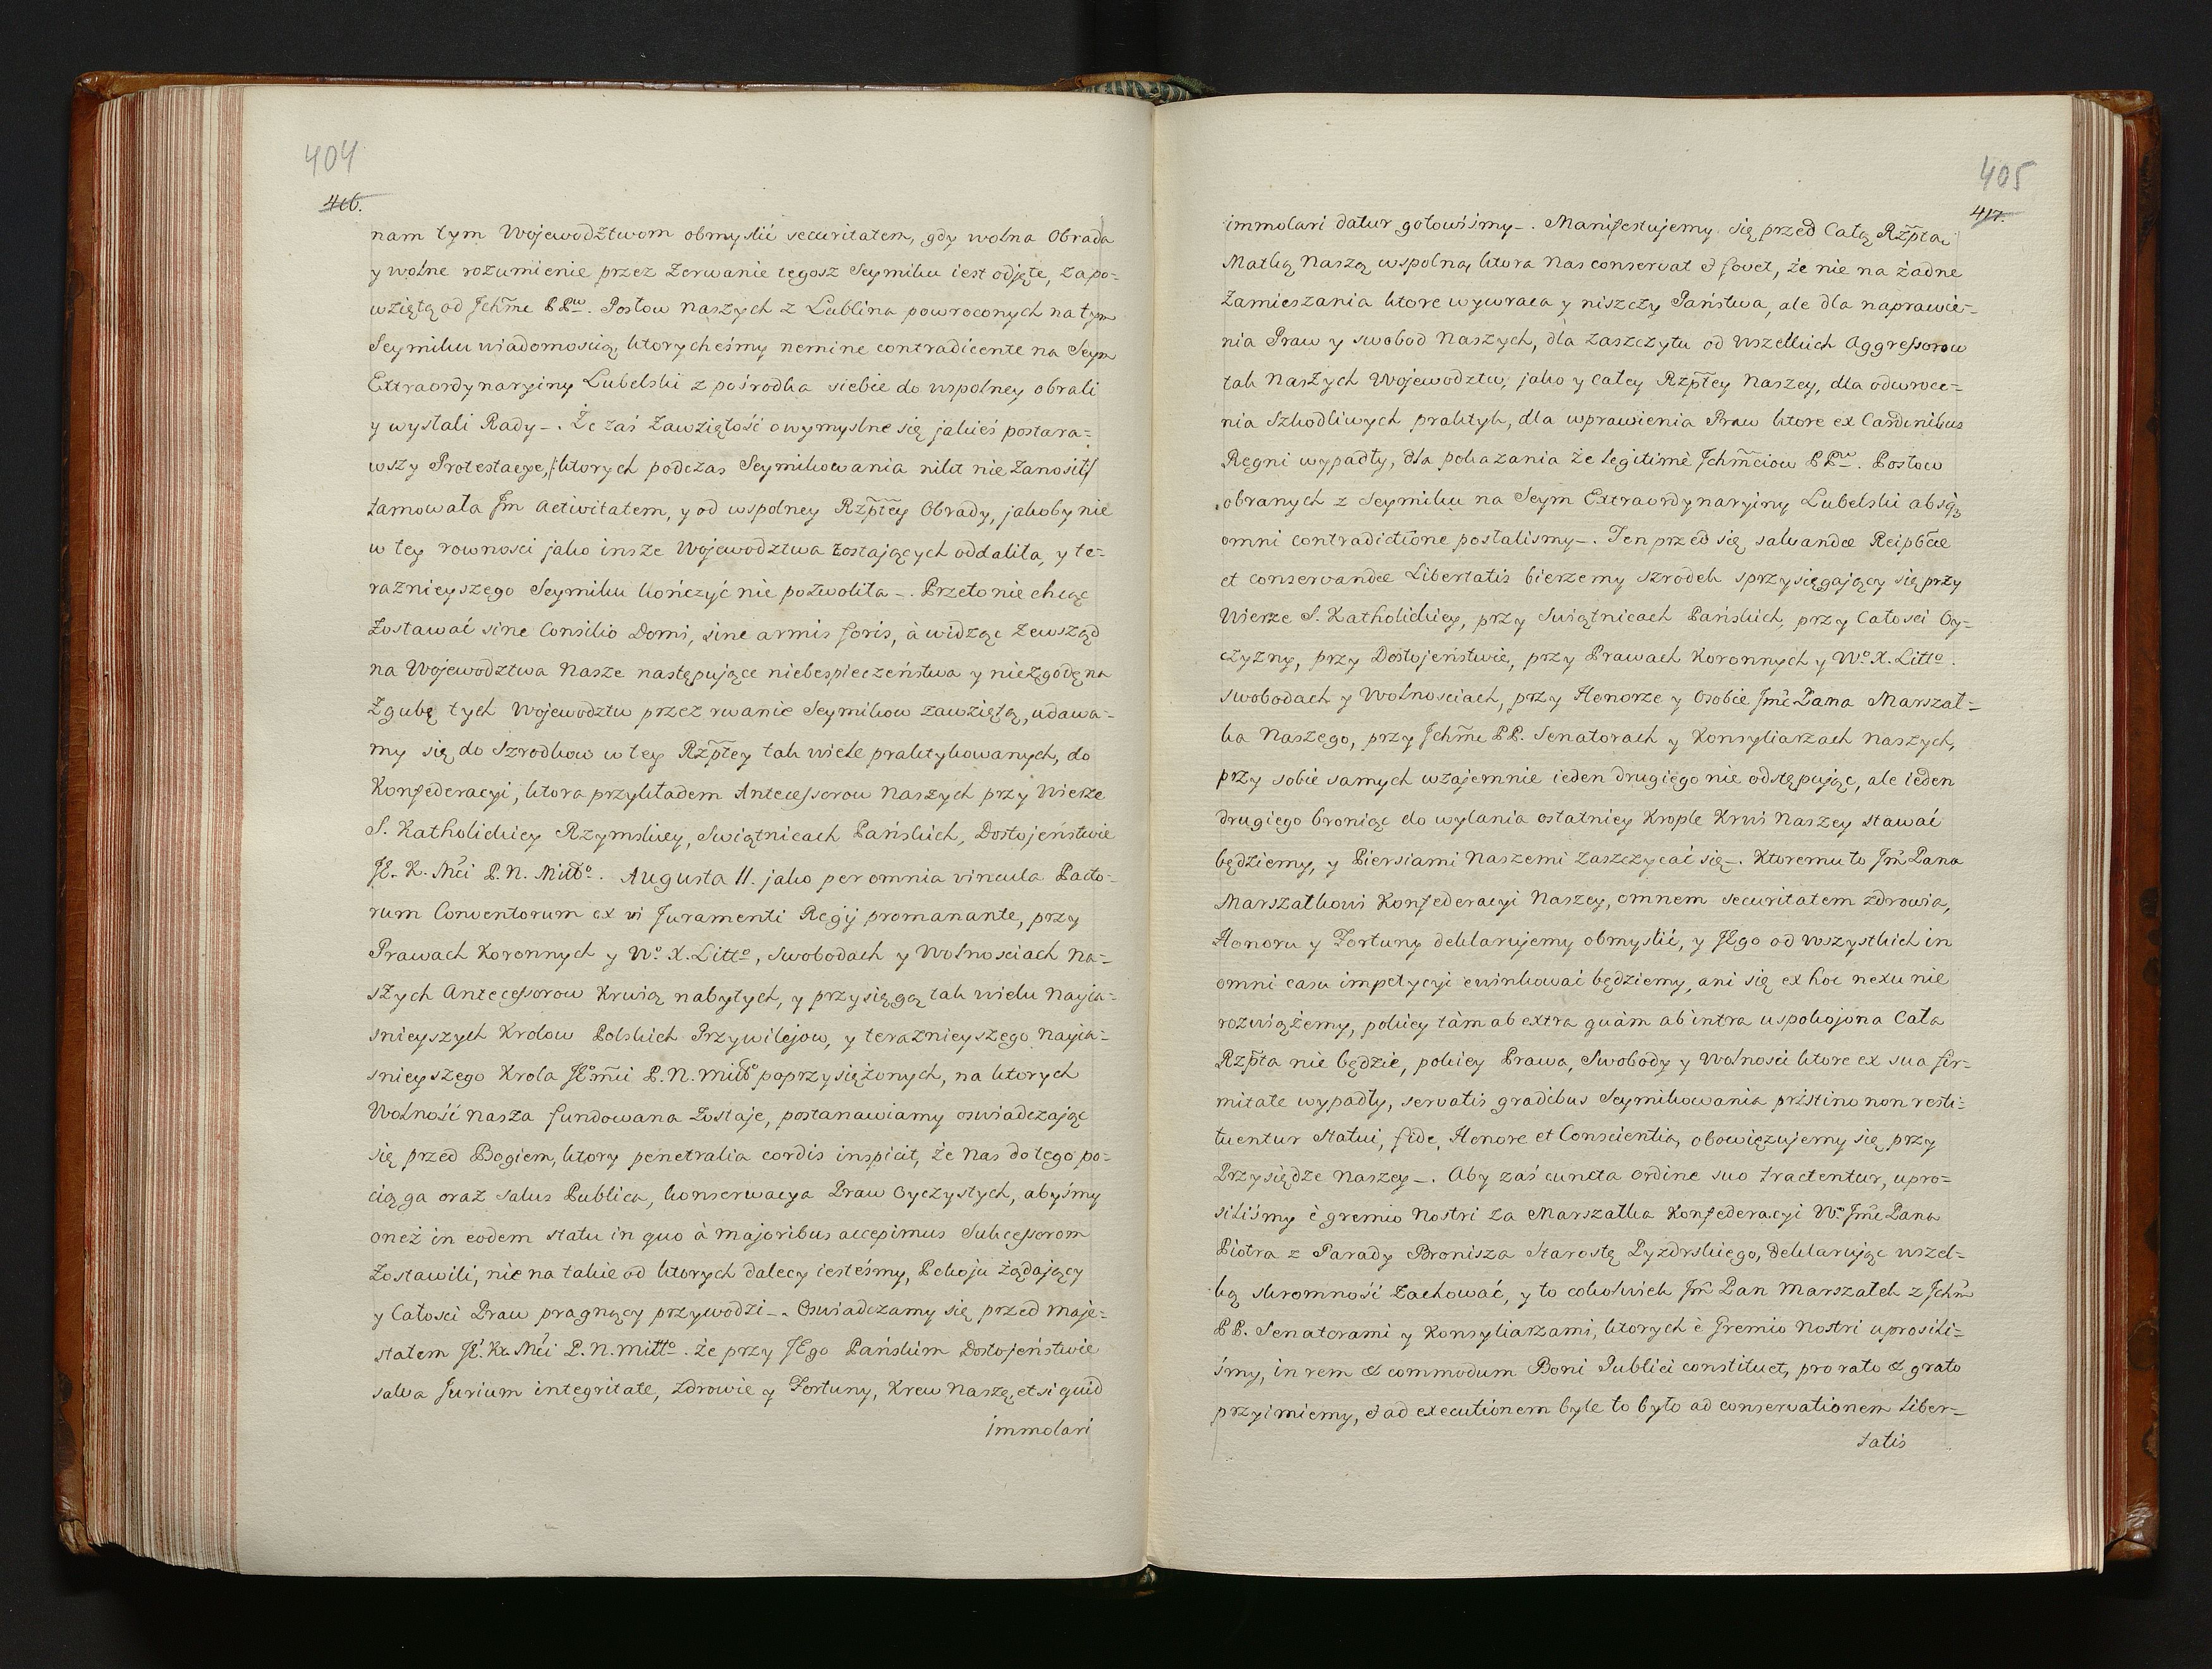 404
416.
nam tym Wojewodztwom obmyslić securitatem, gdy wolna Obrada
y wolne rozumienie przez zerwanie tegosz Seymiku iest odjęte, za po-
wziętą od Jchm̃c PPw. Posłow naszych z Lublina powroconych na tym
Seymiku wiadomoscią, ktorycheśmy nemine contradicente na Seym
Extraordynaryiny Lubelski z pośrodka siebie do wspolney obrali
y wysłali Rady_. Że zaś zawziętość o wymyslne się jakieś postara=
wszy Protestacye, /:ktorych podczas Seymikowania nikt nie zanosił:/
tamowała Jm activitatem, y od wspolney Rzp̃tey Obrady, jakoby nie
w tey rownosci jako insze Wojewodztwa zostających oddaliła, y te=
raznieyszego Seymiku kończyć nie pozwoliła_. Przeto nie chcąc
zostawać sine Consilio Domi, sine armis foris, à widząc zewsząd
na Wojewodztwa Nasze następujące niebespieczeństwa y niezgodę na
Zgubę tych Wojewodztw przez rwanie Seymikow zawziętą, udawa-
my się do Szrodkow w tey Rzp̃tey tak wiele praktykowanych, do
Konfederacyi, ktora przykładem Antecessorow Naszych przy Wierze
S. Katholickiey Rzymskiey, Swiątnicach Pańskich, Dostojeństwie
JE. K. Mći P. N. Miłoo. Augusta II. jako per omnia vincula Pacto-
rum Conventorum ex vi Juramenti Regij promanante, przy
Prawach Koronnych y Wo. X. Litto, Swobodach y Wolnosciach Na=
szych Antecessorow Krwią nabytych, y przysięgą tak wielu Nayia=
snieyszych Krolow Polskich Przywilejow, y teraznieyszego Nayia=
snieyszego Krola JEom̃ći P. N. Miłoo poprzysiężonych, na ktorych
Wolność nasza fundowana zostaje, postanawiamy oswiadczając
się przed Bogiem, ktory penetralia cordis inspicit, że Nas do tego po=
ciąga oraz salus Publica, konserwacya Praw Oyczystych, abyśmy
onez in eodem statu in quo à majoribus accepimus Sukcessorom
zostawili, nie na takie od ktorych dalecy iesteśmy, Pokoju żądający
y Całosci Praw pragnący przywodzi_. Oswiadczamy się przed Maje=
statem JE. Kr. Mći P. N. Miłto. że przy JEgo Pańskim Dostojeństwie
salva Jurium integritate, zdrowie y Fortuny, Krew Naszą, et si quid
immolari
405
417.
immolari datur gotowiśmy_. Manifestujemy się przed Całą Rzp̃tą
Matką Naszą wspolną, ktora Nas conservat & fovet, że nie na żadne
zamieszania ktore wywraca y niszczy Państwa, ale dla naprawie=
nia Praw y swobod Naszych, dla zaszczytu od wszelkich Aggressorow
tak Naszych Wojewodztw, jako y Całey Rzp̃tey Naszey, dla odwroce=
nia Szkodliwych praktyk, dla wprawienia Praw ktore ex Cardinibus
Regni wypadły, dla pokazania że legitimè Jchm̃ciow PPw. Posłow
obranych z Seymiku na Seym Extraordynaryiny Lubelski absq
omni contradictione posłalismy_. Ten przed się salvandæ Reipb̃cæ
et conservandæ Libertatis bierzemy szrodek sprzysięgający się przy
Wierze S. Katholickiey, przy Swiątnicach Pańskich, przy Całosci Oy=
czyzny, przy Dostojeństwie, przy Prawach Koronnych y Wo. X. Litto.
swobodach y Wolnosciach, przy Honorze y Osobie Jmc̃ Pana Marszał=
ka Naszego, przy Jchm̃c PP. Senatorach y Konsyliarzach Naszych,
przy sobie samych wzajemnie ieden drugiego nie odstępując, ale ieden
drugiego broniąc do wylania ostatniey Krople Krwi Naszey stawać
będziemy, y Piersiami Naszemi zaszczycać się_. Ktoremu to Jm̃ Pana
Marszałkowi Konfederacyi Naszey, omnem securitatem zdrowia,
Honoru y Fortuny deklarujemy obmyslić, y JEgo od wszystkich in
omni casu impetycyi ewinkować będziemy, ani się ex hoc nexu nie
rozwiążemy, pokiey tàm ab extra quàm ab intra uspokojona Cała
Rzp̃ta nie będzie, pokiey Prawa, Swobody y Wolnosci ktore ex sua fir-
mitate wypadły, servatis gradibus Seymikowania pristino non resti=
tuentur statui, fide, Honore et Conscientia, obowięzujemy się przy
Przysiędze Naszey_. Aby zaś cuncta ordine suo tractentur, upro=
siliśmy è gremio Nostri za Marszałka Konfederacyi Wo Jmc̃ Pana
Piotra z Parady Bronisza Starostę Pyzdrskiego, deklarując wszel=
ką skromność zachować, y to cokolwiek Jm̃ Pan Marszałek z Jchm̃
PP. Senatorami y Konsyliarzami, ktorych è Gremio Nostri uprosili=
śmy, in rem & commodum Boni Publici constituet, pro rato & grato
przyimiemy, & ad executionem byle to było ad conservationem Liber=
tatis